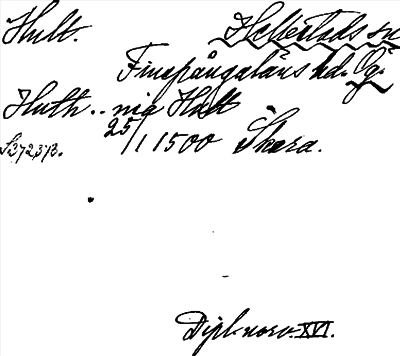 Hult. Hellestads sn
Finspångaläns hd. Ög.
Huth .. nia Hult
25/1 1500 Skara.
Dipl. norv. XVI.